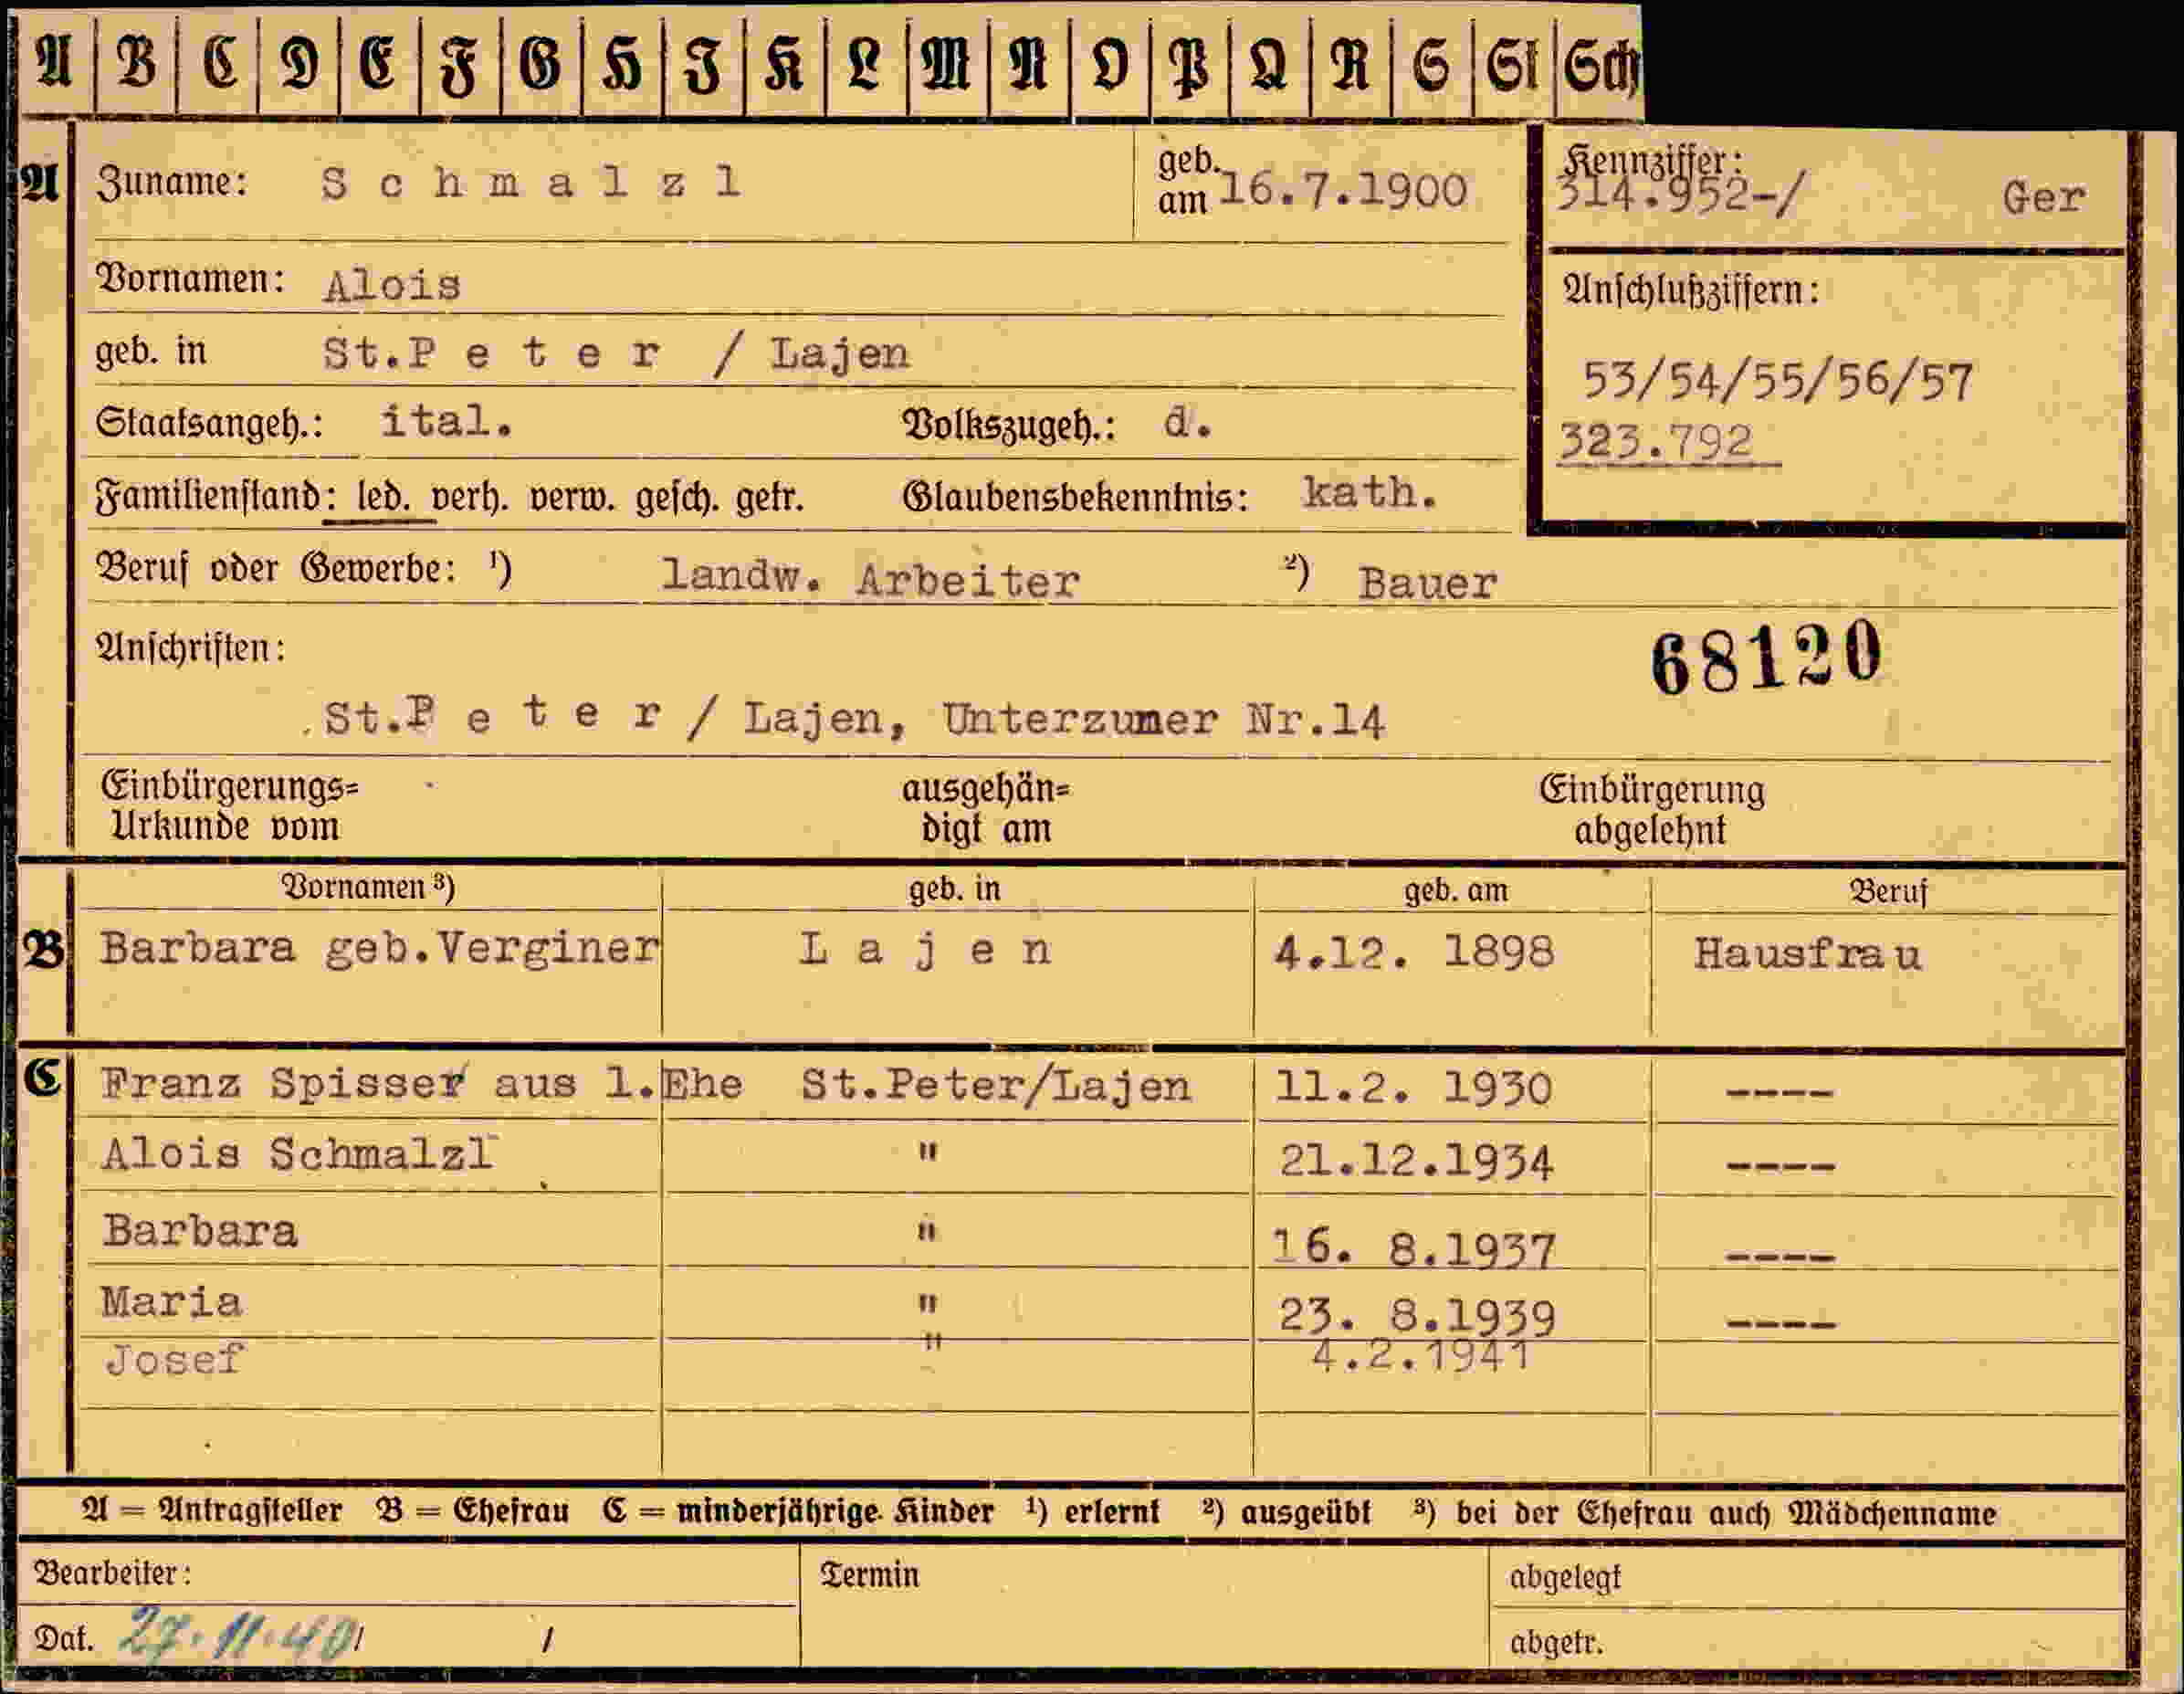 A B C D E F G H I K L M N O P Q R S St Sch
A Zuname: S c h m a l z l geb. am 16.7.1900 Kennziffer: 314.952-/ Ger
Vornamen: Alois Anschlußziffern:
geb. in St.P e t e r / Lajen 53/54/55/56/57
Staatsangeh.: ital. Volkszugeh.: d. 323.792
Familienstand: led. verh. verw. gesch. getr. Glaubensbekenntnis: kath.
Beruf oder Gewerbe: ¹) landw. Arbeiter ²) Bauer
Anschriften: 68120
St.P e t e r / Lajen, Unterzumer Nr.14
Einbürgerungs= ausgehän= Einbürgerung
Urkunde vom digt am abgelehnt
Vornamen ³) geb. in geb. am Beruf
B Barbara geb.Verginer L a j e n 4.12. 1898 Hausfrau
C Franz Spisser aus 1.Ehe St.Peter/Lajen 11.2. 1930 ----
Alois Schmalzl " 21.12.1934 ----
Barbara " 16. 8.1937 ----
Maria " 23. 8.1939 ----
Josef " 4.2.1941
A = Antragsteller B = Ehefrau C = minderjährige Kinder ¹) erlernt ²) ausgeübt ³) bei der Ehefrau auch Mädchenname
Bearbeiter: Termin abgelegt
Dat. 27.11.40/ / abgetr.